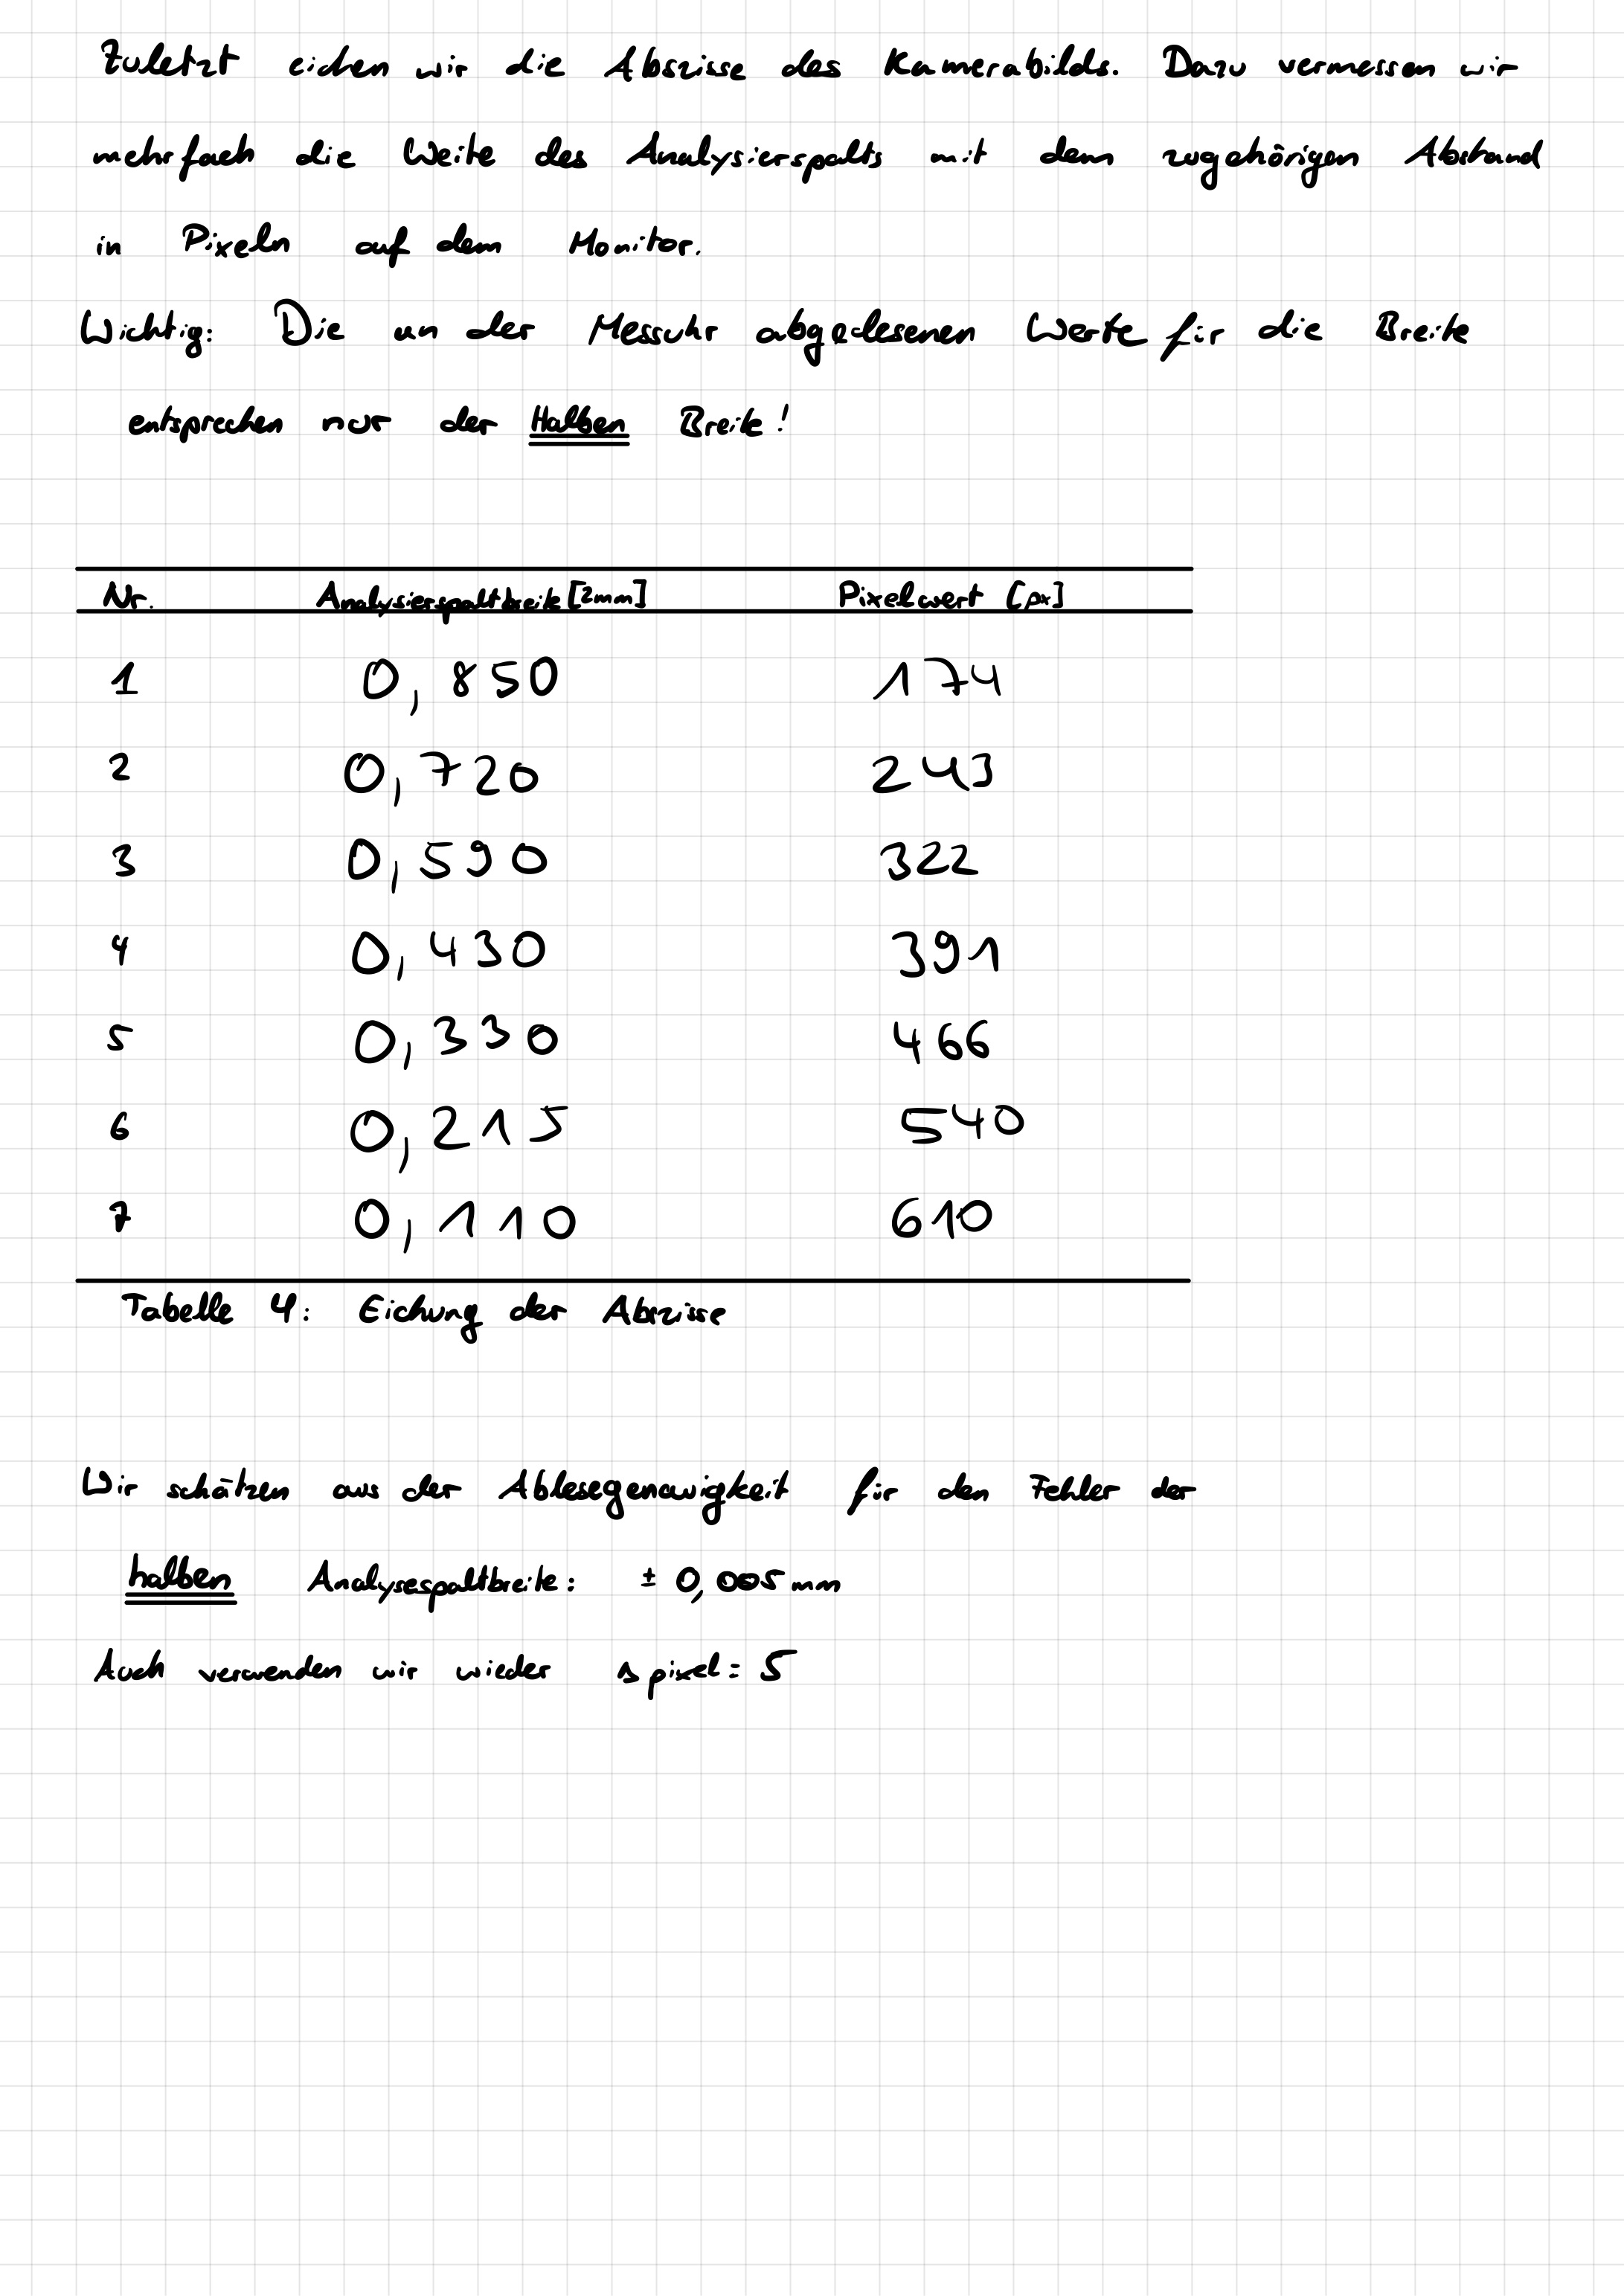 Zuletzt eichen wir die Abszisse des Kamerabilds. Dazu vermessen wir
mehrfach die Weite des Analysierspalts mit dem zugehörigen Abstand
in Pixeln auf dem Monitor.
Wichtig: Die an der Messuhr abgelesenen Werte für die Breite
entsprechen nur der Halben Breite!
Nr. Analysierspaltbreite [2mm] Pixelwert [px]
1 0,850 174
2 0,720 243
3 0,590 322
4 0,430 391
5 0,330 466
6 0,215 540
7 0,110 610
Tabelle 4: Eichung der Abszisse
Wir schätzen aus der Ablesegenauigkeit für den Fehler der
halben Analysespaltbreite: ± 0,005 mm
Auch verwenden wir wieder Δ pixel = 5